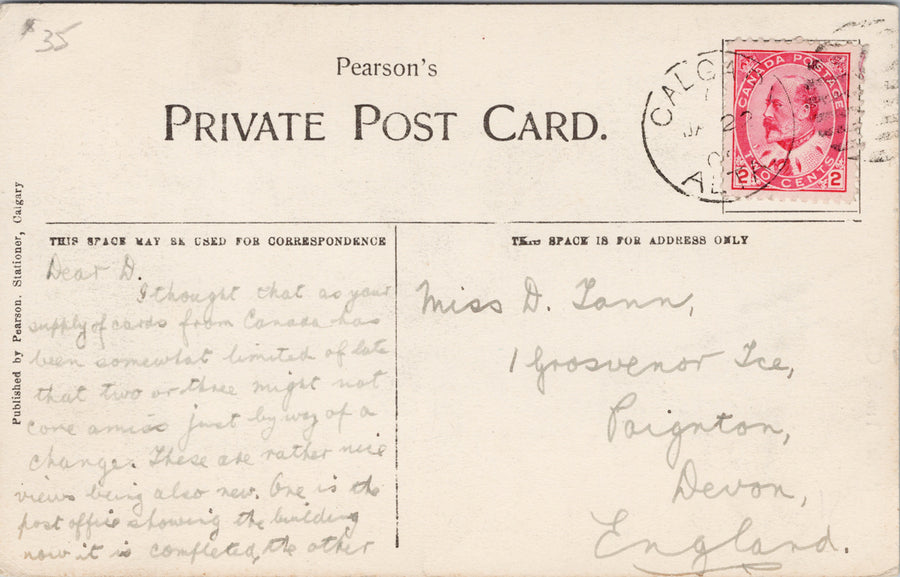 $35
Pearson's
PRIVATE POST CARD.
CALGARY
JA 2
ALTA
CANADA POSTAGE
2 TWO CENTS 2
Published by Pearson. Stationer, Calgary
THIS SPACE MAY BE USED FOR CORRESPONDENCE
Dear D.
I thought that as your
supply of cards from Canada has
been somewhat limited of late
that two or three might not
come amiss just by way of a
change. These are rather nice
views being also new. One is the
post office showing the building
now it is completed, the other
THIS SPACE IS FOR ADDRESS ONLY
Miss D. Tann,
1 Grosvenor Tce,
Paignton,
Devon,
England.